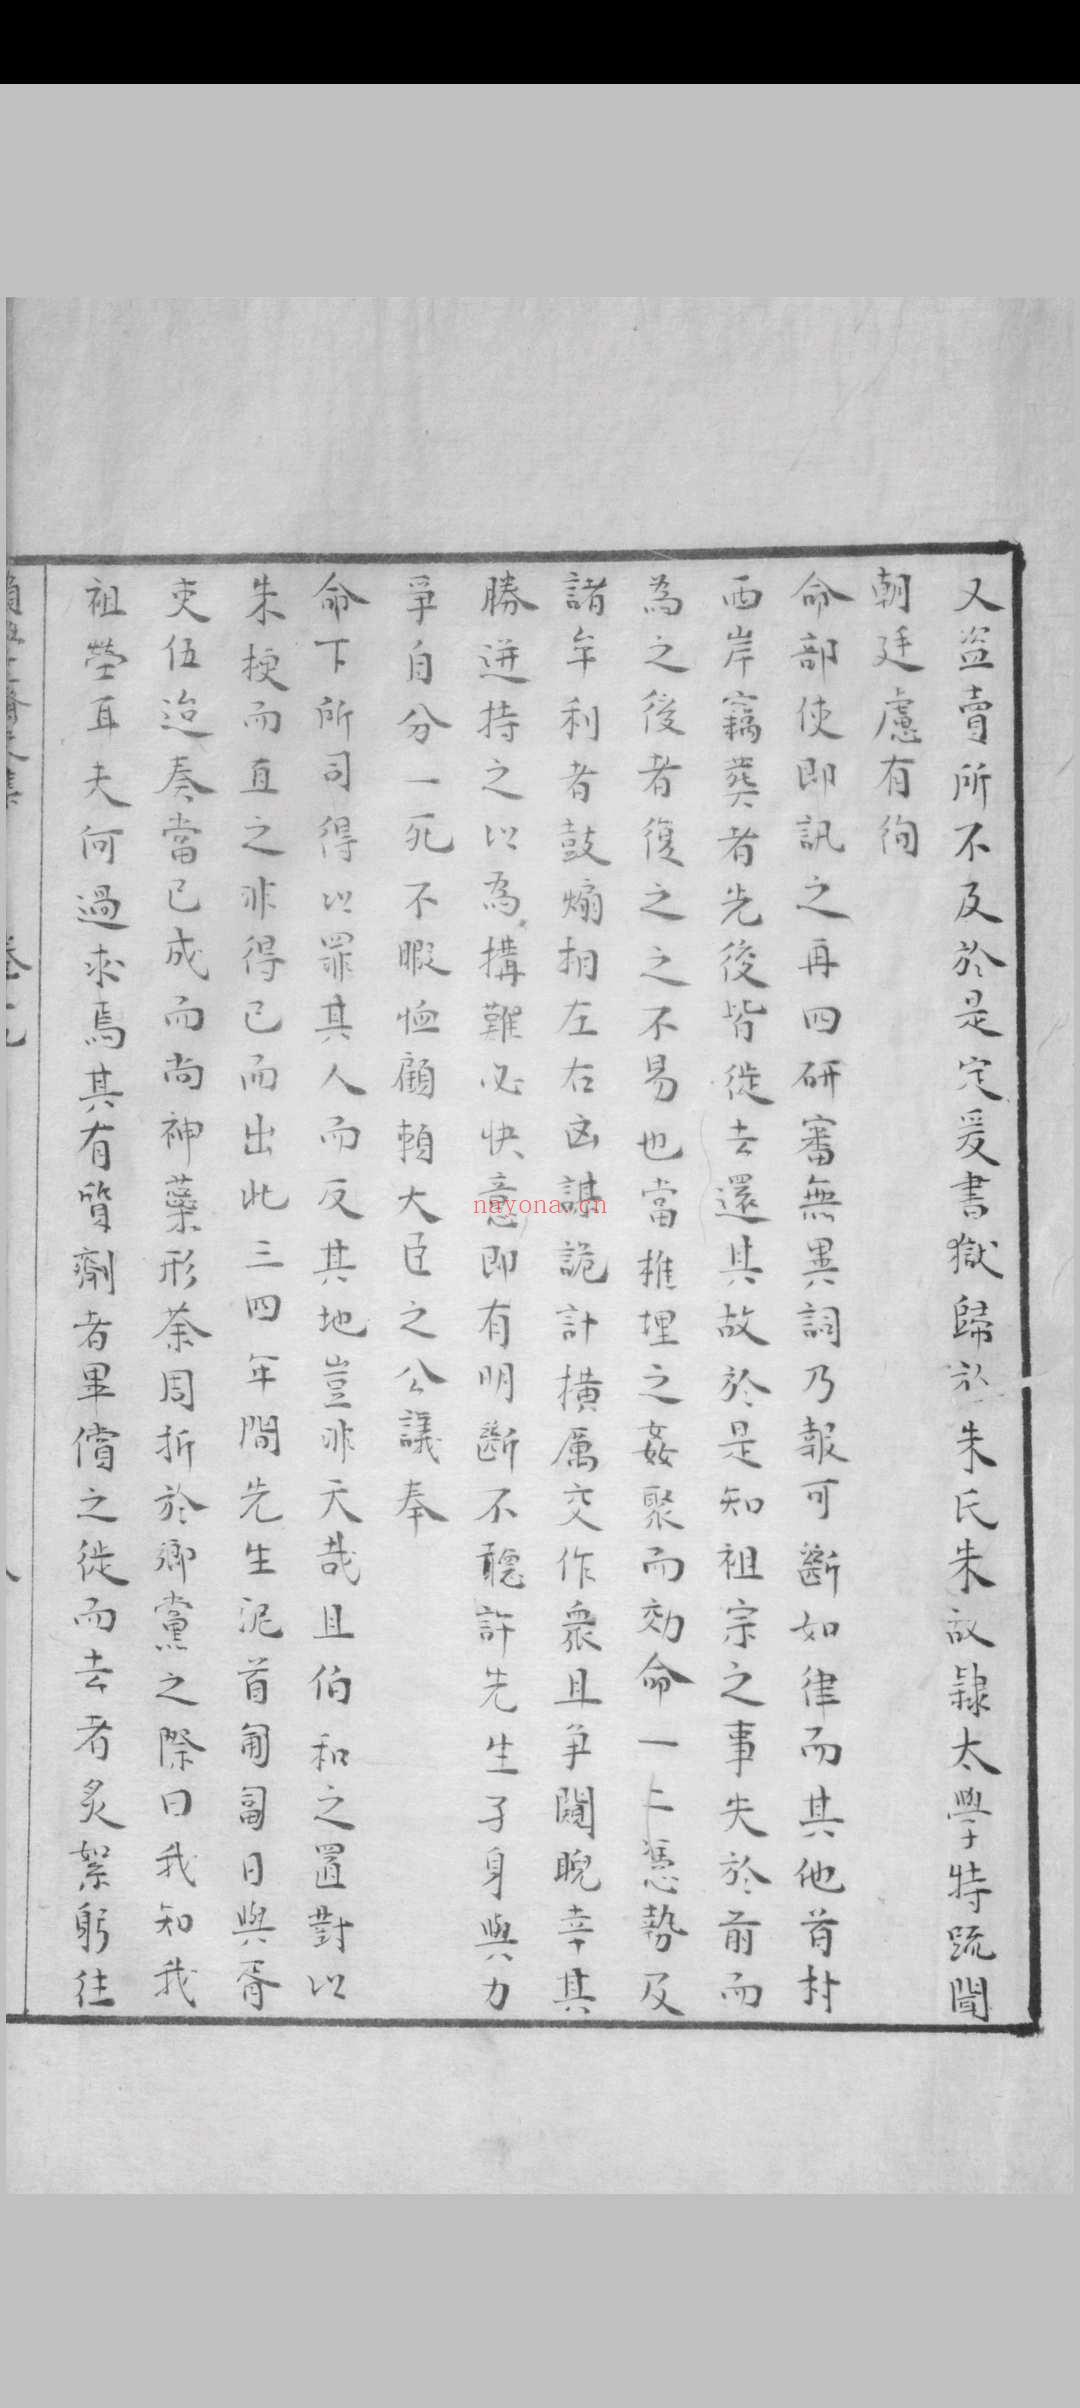 又盜賣所不及於是定爰書獄歸於朱氏朱故隸太學特疏聞
朝廷慮有徇
命部使即訊之再四研審無異詞乃報可斷如律而其他首村
西岸竊葬者先後皆徙去還其故於是知祖宗之事失於前而
為之後者復之之不易也當椎埋之姦聚而効命一二憑勢及
諸牟利者鼓煽相左右凶謀詭計撗厲交作衆且爭鬩睨幸其
勝迸持之以為搆難必快意即有明斷不聽許先生孑身與力
爭自分一死不暇恤顧賴大臣之公議奉
命下所司得以罪其人而反其地豈非天哉且伯和之置對以
朱梗而直之非得已而出此三四年間先生泥首匍匐日與胥
吏伍迨奏當已成而尚神藥形荼周折於鄉黨之際曰我知我
祖塋耳夫何過求焉其有質劑者畢償之徙而去者炙絮躬往
nayona.cn